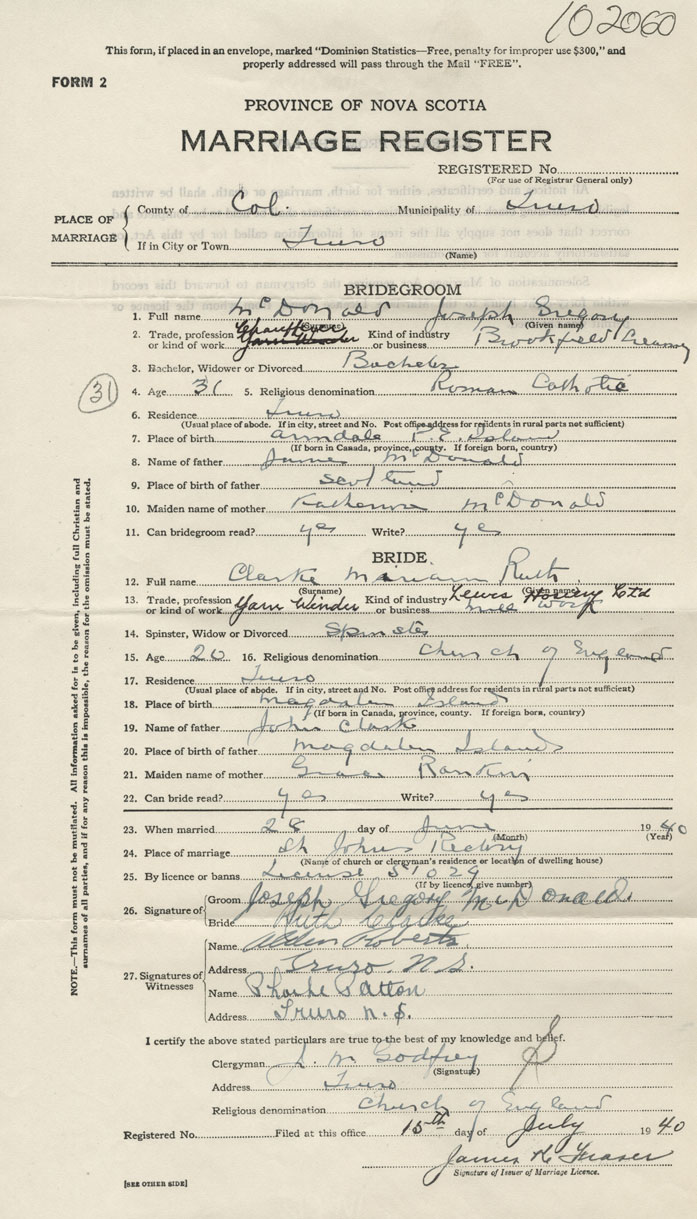 102060
This form, if placed in an envelope, marked "Dominion Statistics—Free, penalty for improper use $300," and
properly addressed will pass through the Mail "FREE".
FORM 2
PROVINCE OF NOVA SCOTIA
MARRIAGE REGISTER
REGISTERED No.
(For use of Registrar General only)
PLACE OF MARRIAGE
County of Col. Municipality of Truro
If in City or Town Truro
(Name)
BRIDEGROOM
1. Full name McDonald Joseph Gregory
(Surname) (Given name)
2. Trade, profession or kind of work Chauffeur Kind of industry or business Brookfield Creamery
3. Bachelor, Widower or Divorced Bachelor
31
4. Age 31 5. Religious denomination Roman Catholic
6. Residence Truro
(Usual place of abode. If in city, street and No. Post office address for residents in rural parts not sufficient)
7. Place of birth Armdale P.E. Island
(If born in Canada, province, county. If foreign born, country)
8. Name of father James McDonald
9. Place of birth of father Scotland
10. Maiden name of mother Katherine McDonald
11. Can bridegroom read? yes Write? yes
BRIDE
12. Full name Clarke Miriam Ruth
(Surname) (Given name)
13. Trade, profession or kind of work Yarn Winder Kind of industry or business Lewis Hosiery Ltd
mill work
14. Spinster, Widow or Divorced Spinster
15. Age 20 16. Religious denomination Church of England
17. Residence Truro
(Usual place of abode. If in city, street and No. Post office address for residents in rural parts not sufficient)
18. Place of birth Magdalen Island
(If born in Canada, province, county. If foreign born, country)
19. Name of father John Clark
20. Place of birth of father Magdalen Islands
21. Maiden name of mother Grace Rankin
22. Can bride read? yes Write? yes
23. When married 28 day of June 1940
(Month) (Year)
24. Place of marriage St Johns Rectory
(Name of church or clergyman's residence or location of dwelling house)
25. By licence or banns License 51029
(If by licence, give number)
26. Signature of Groom Joseph Gregory McDonald.
Bride Ruth Clarke
27. Signatures of Witnesses
Name Alden Roberts
Address Truro N.S.
Name Patton
Address Truro N.S.
I certify the above stated particulars are true to the best of my knowledge and belief.
Clergyman J. M Godfrey
(Signature)
Address Truro
Religious denomination Church of England
Registered No. Filed at this office 15th day of July 1940
James K Fraser
Signature of Issuer of Marriage Licence.
[SEE OTHER SIDE]
NOTE.—This form must not be mutilated. All information asked for is to be given, including full Christian and
surnames of all parties, and if for any reason this is impossible, the reason for the omission must be stated.